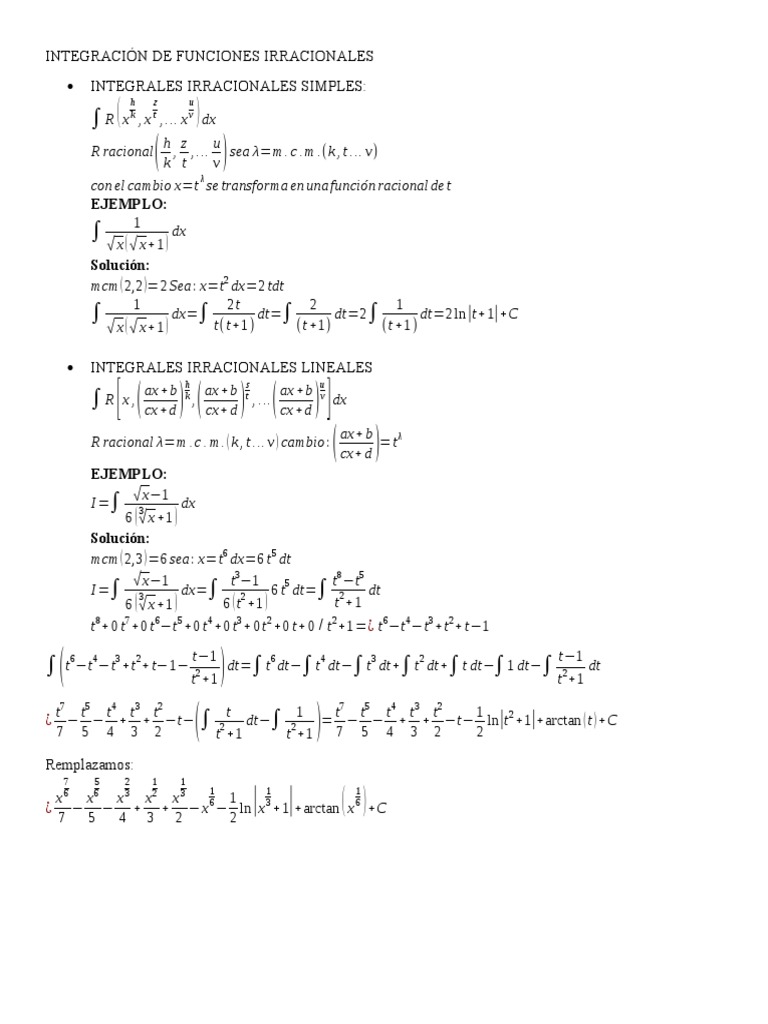 INTEGRACIÓN DE FUNCIONES IRRACIONALES
• INTEGRALES IRRACIONALES SIMPLES:
∫ R(x^(h/k), x^(z/t), ... x^(u/v)) dx
R racional (h/k, z/t, ... u/v) sea λ=m.c.m.(k,t...v)
con el cambio x=t^λ se transforma en una función racional de t
EJEMPLO:
∫ 1/(√x(√x+1)) dx
Solución:
mcm(2,2)=2 Sea: x=t² dx=2tdt
∫ 1/(√x(√x+1)) dx=∫ 2t/(t(t+1)) dt=∫ 2/(t+1) dt=2∫ 1/(t+1) dt=2ln|t+1|+C
• INTEGRALES IRRACIONALES LINEALES
∫ R[x, ((ax+b)/(cx+d))^(h/k), ((ax+b)/(cx+d))^(s/t), ... ((ax+b)/(cx+d))^(u/v)] dx
R racional λ=m.c.m.(k,t...v) cambio: ((ax+b)/(cx+d))=t^λ
EJEMPLO:
I=∫ (√x−1)/(6(∛x+1)) dx
Solución:
mcm(2,3)=6 sea: x=t⁶ dx=6t⁵dt
I=∫ (√x−1)/(6(∛x+1)) dx=∫ (t³−1)/(6(t²+1)) 6t⁵dt=∫ (t⁸−t⁵)/(t²+1) dt
t⁸+0t⁷+0t⁶−t⁵+0t⁴+0t³+0t²+0t+0/t²+1=¿t⁶−t⁴−t³+t²+t−1
∫(t⁶−t⁴−t³+t²+t−1−(t−1)/(t²+1))dt=∫t⁶dt−∫t⁴dt−∫t³dt+∫t²dt+∫tdt−∫1dt−∫(t−1)/(t²+1) dt
¿ t⁷/7−t⁵/5−t⁴/4+t³/3+t²/2−t−(∫ t/(t²+1) dt−∫ 1/(t²+1))=t⁷/7−t⁵/5−t⁴/4+t³/3+t²/2−t−1/2 ln|t²+1|+arctan(t)+C
Remplazamos:
¿ x^(7/6)/7−x^(5/6)/5−x^(2/3)/4+x^(1/2)/3+x^(1/3)/2−x^(1/6)−1/2 ln|x^(1/3)+1|+arctan(x^(1/6))+C